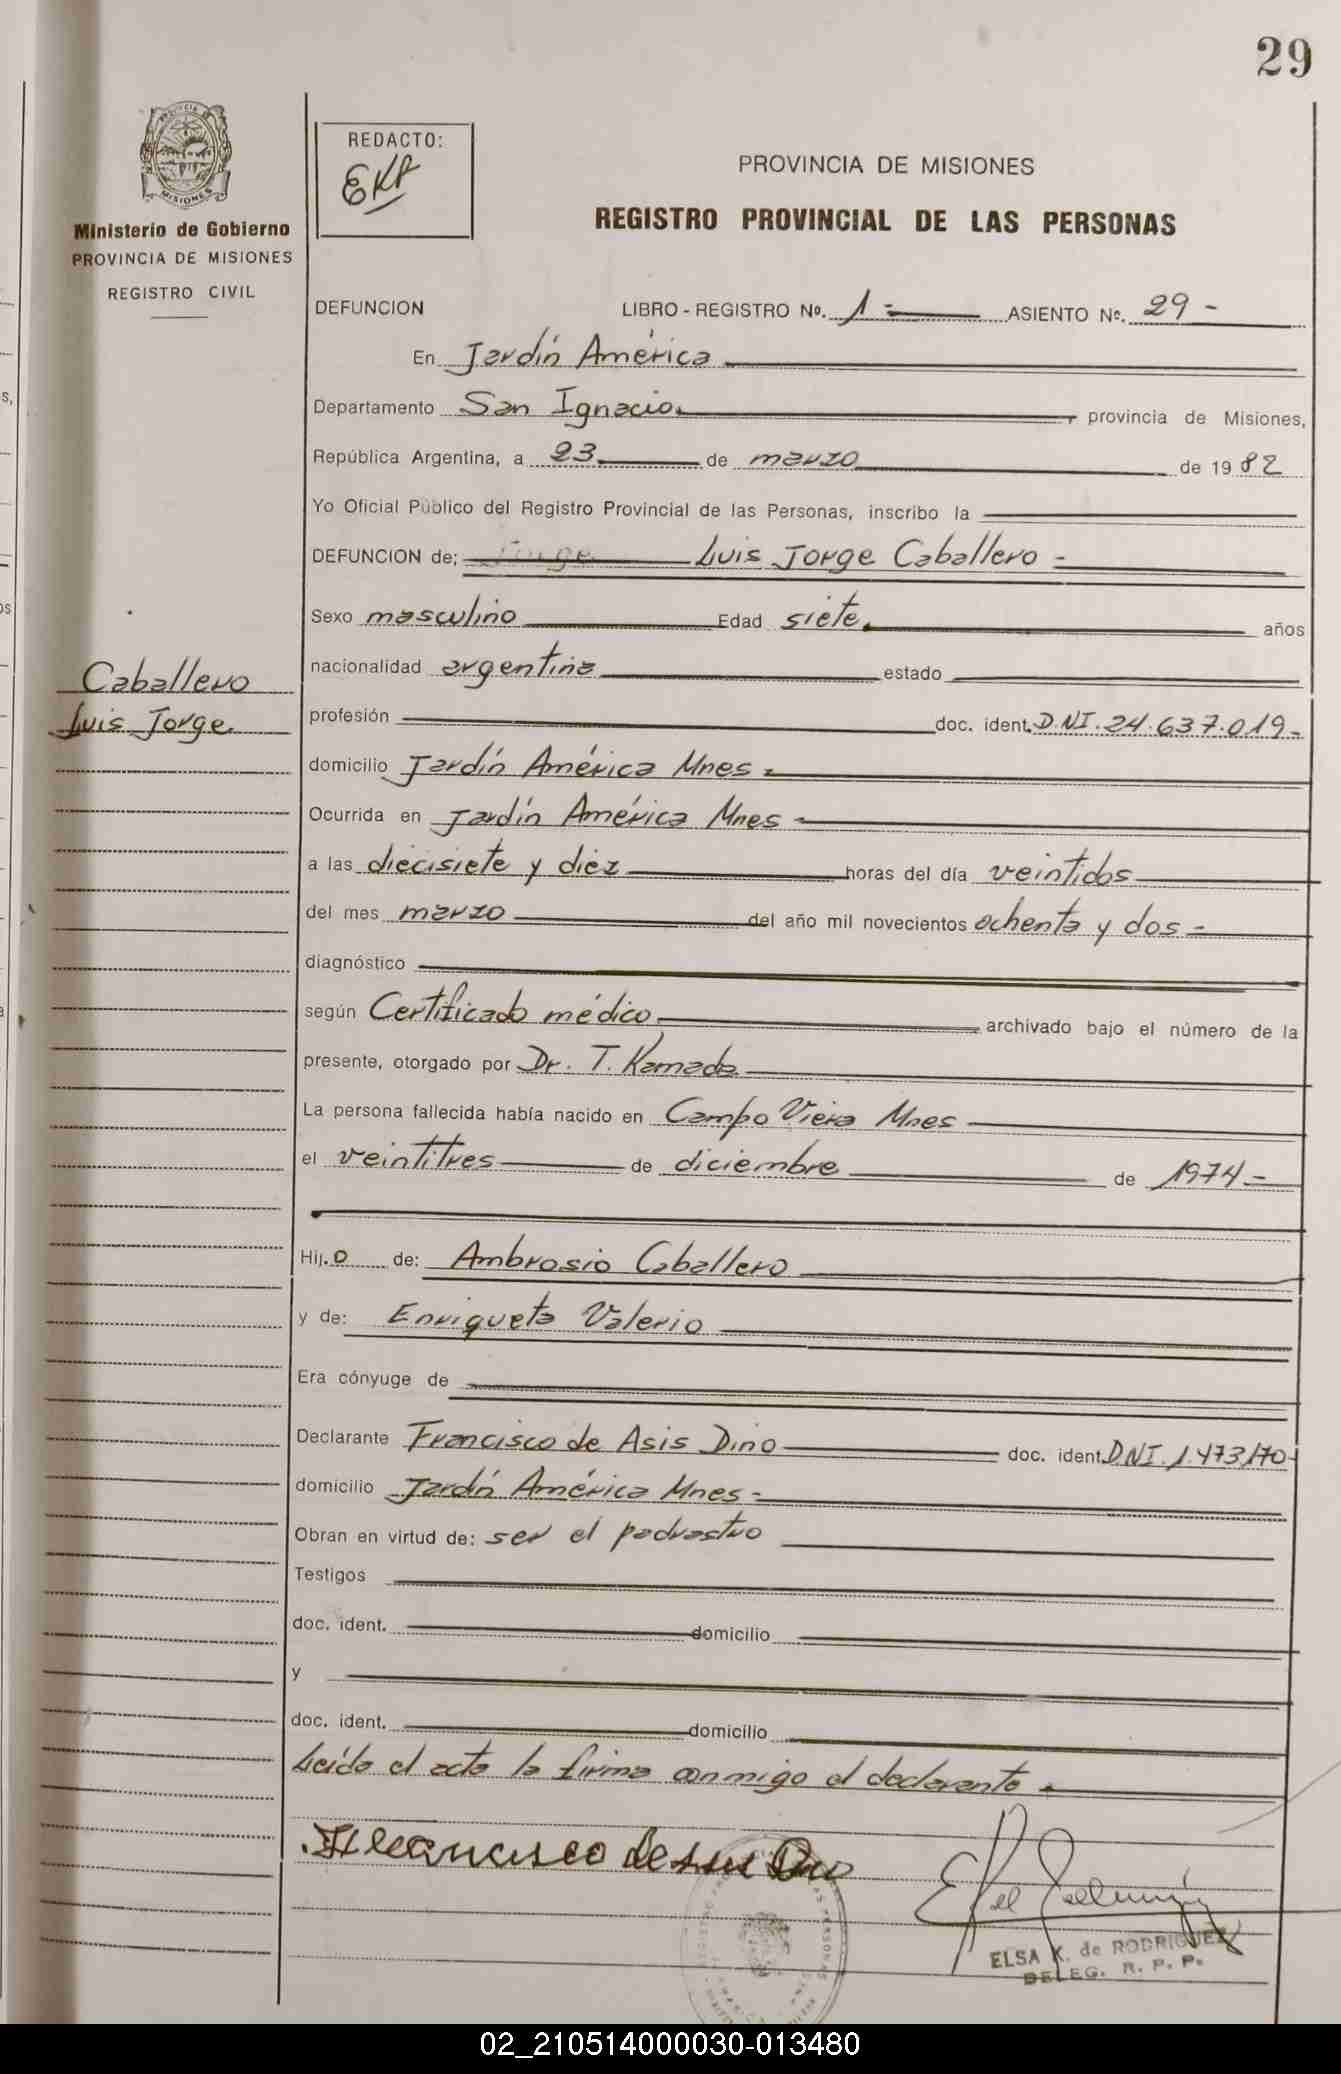 29
PROVINCIA DE
MISIONES
Ministerio de Gobierno
PROVINCIA DE MISIONES
REGISTRO CIVIL
REDACTO:
EKR
PROVINCIA DE MISIONES
REGISTRO PROVINCIAL DE LAS PERSONAS
DEFUNCION LIBRO - REGISTRO Nº. 1 - ASIENTO Nº. 29 -
En Jardín América
Departamento San Ignacio. provincia de Misiones,
República Argentina, a 23 de marzo de 1982
Yo Oficial Público del Registro Provincial de las Personas, inscribo la
DEFUNCION de; Jorge Luis Jorge Caballero -
Sexo masculino Edad siete. años
Caballero
Luis Jorge
nacionalidad argentina estado
profesión doc. ident. D.NI. 24.637.019-
domicilio Jardín América Mnes.
Ocurrida en Jardín América Mnes -
a las diecisiete y diez horas del día veintidos
del mes marzo del año mil novecientos ochenta y dos -
diagnóstico
según Certificado médico. archivado bajo el número de la
presente, otorgado por Dr. T. Kamada
La persona fallecida había nacido en Campo Viera Mnes
el veintitres de diciembre de 1974-
Hij.o de: Ambrosio Caballero
y de: Enriqueta Valerio
Era cónyuge de
Declarante Francisco de Asis Dino doc. ident. DNI. 1.473170-
domicilio Jardín América Mnes -
Obran en virtud de: ser el padrastro
Testigos
doc. ident. domicilio
y
doc. ident. domicilio
Leída el acta la firma conmigo el declarante.
ELSA K. de RODRIGUEZ
DELEG. R. P. P.
02_210514000030-013480